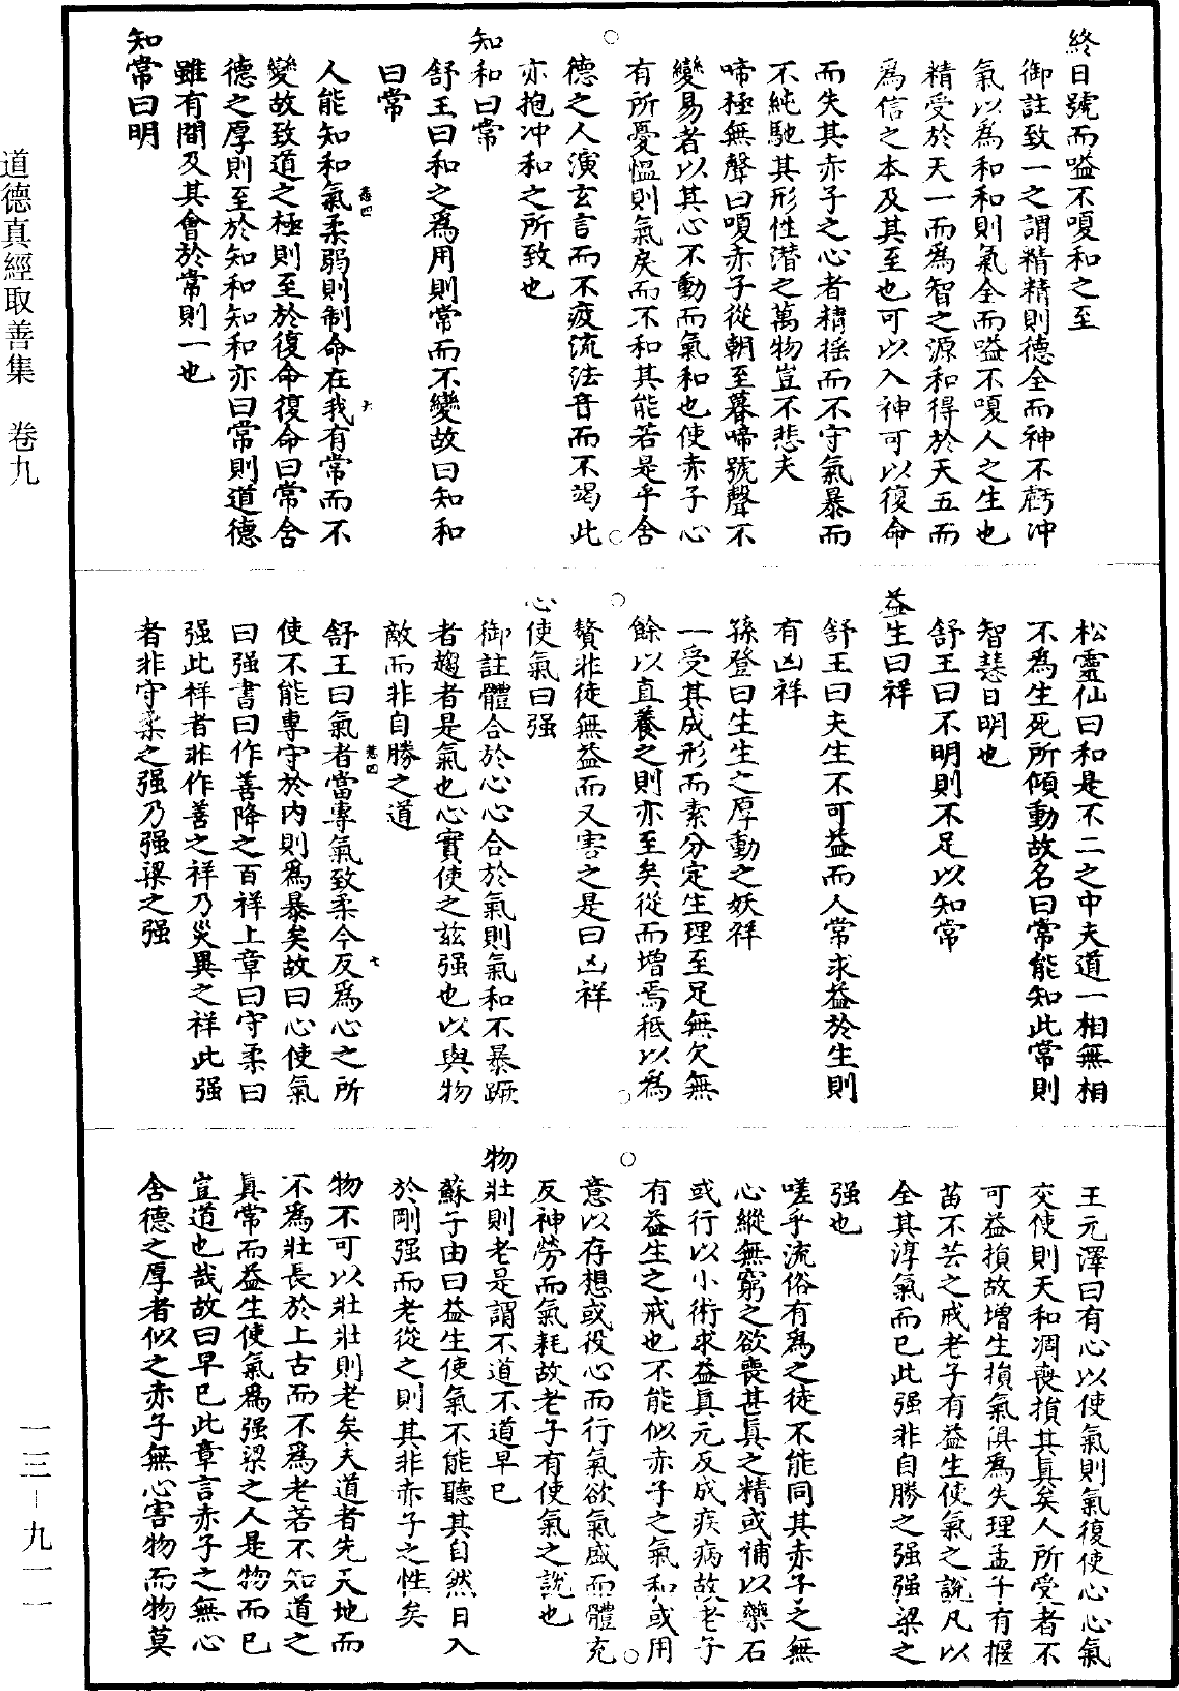 終日號而嗌不嗄和之至
御註致一之謂精精則德全而神不虧冲
氣以爲和和則氣全而嗌不嗄人之生也
精受於天一而爲智之源和得於天五而
爲信之本及其至也可以入神可以復命
而失其赤子之心者精揺而不守氣暴而
不純馳其形性潛之萬物豈不悲夫
啼極無聲曰嗄赤子從朝至暮啼號聲不
變易者以其心不動而氣和也使赤子心
有所憂愠則氣戾而不和其能若是乎含
德之人演玄言而不疲流法音而不竭此
亦抱冲和之所致也
知和曰常
舒王曰和之爲用則常而不變故曰知和
曰常
人能知和氣柔弱則制命在我有常而不
變故致道之極則至於復命復命曰常含
德之厚則至於知和知和亦曰常則道德
雖有間及其會於常則一也
知常曰明
松靈仙曰和是不二之中夫道一相無相
不爲生死所傾動故名曰常能知此常則
智慧日明也
舒王曰不明則不足以知常
益生曰祥
舒王曰夫生不可益而人常求益於生則
有凶祥
孫登曰生生之厚動之妖祥
一受其成形而素分定生理至足無欠無
餘以直養之則亦至矣從而增焉秪以爲
贅非徒無益而又害之是曰凶祥
心使氣曰强
御註體合於心心合於氣則氣和不暴蹶
者趨者是氣也心實使之兹强也以與物
敵而非自勝之道
舒王曰氣者當專氣致柔今反爲心之所
使不能專守於内則爲暴矣故曰心使氣
曰强書曰作善降之百祥上章曰守柔曰
强此祥者非作善之祥乃災異之祥此强
者非守柔之强乃强梁之强
王元澤曰有心以使氣則氣復使心心氣
交使則天和凋喪損其真矣人所受者不
可益損故增生損氣俱爲失理孟子有揠
苗不芸之戒老子有益生使氣之說凡以
全其淳氣而已此强非自勝之强强梁之
强也
嗟乎流俗有爲之徒不能同其赤子之無
心縱無窮之欲喪甚真之精或補以藥石
或行以小術求益真元反成疾病故老子
有益生之戒也不能似赤子之氣和或用
意以存想或役心而行氣欲氣盛而體充
反神勞而氣耗故老子有使氣之說也
物壯則老是謂不道不道早已
蘇子由曰益生使氣不能聽其自然日入
於剛强而老從之則其非赤子之性矣
物不可以壯壯則老矣夫道者先天地而
不爲壯長於上古而不爲老若不知道之
真常而益生使氣爲强梁之人是物而已
豈道也哉故曰早已此章言赤子之無心
含德之厚者似之赤子無心害物而物莫
道德真經取善集 卷九
一三-九一一